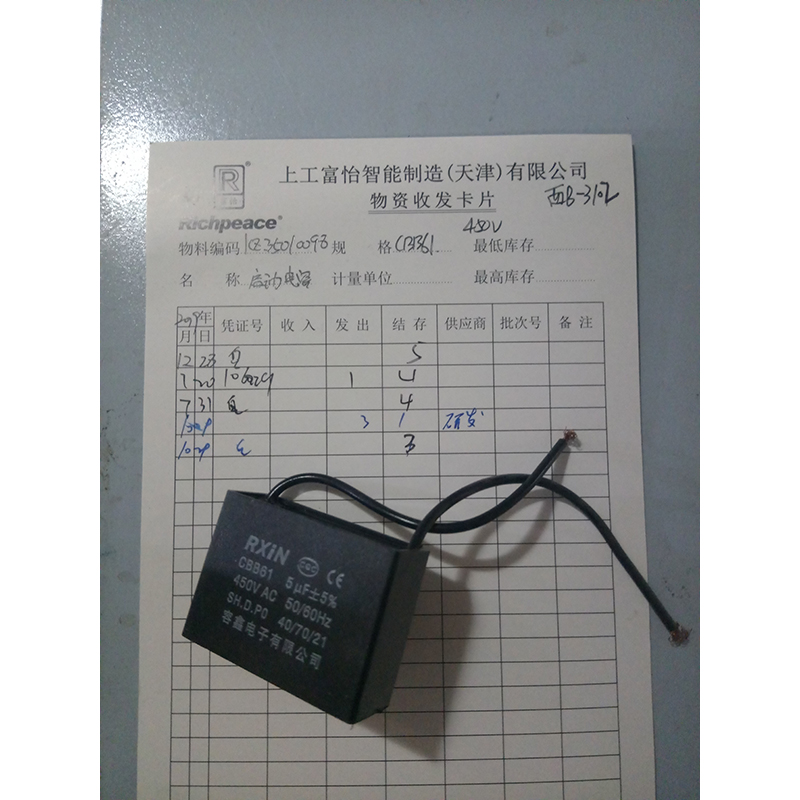 R
上工富怡智能制造(天津)有限公司
物资收发卡片
西B-3102
Richpeace®
450V
物料编码 规格 CBB61 最低库存
名称 启动电容 计量单位 最高库存
2019年 凭证号 收入 发出 结存 供应商 批次号 备注
月 日
12 28 5
7 20 1 4
7 31 4
3 1 研发
3
RXIN CQC CE
CBB61 5μF±5%
450V AC 50/60Hz
SH.D.P0 40/70/21
容鑫电子有限公司